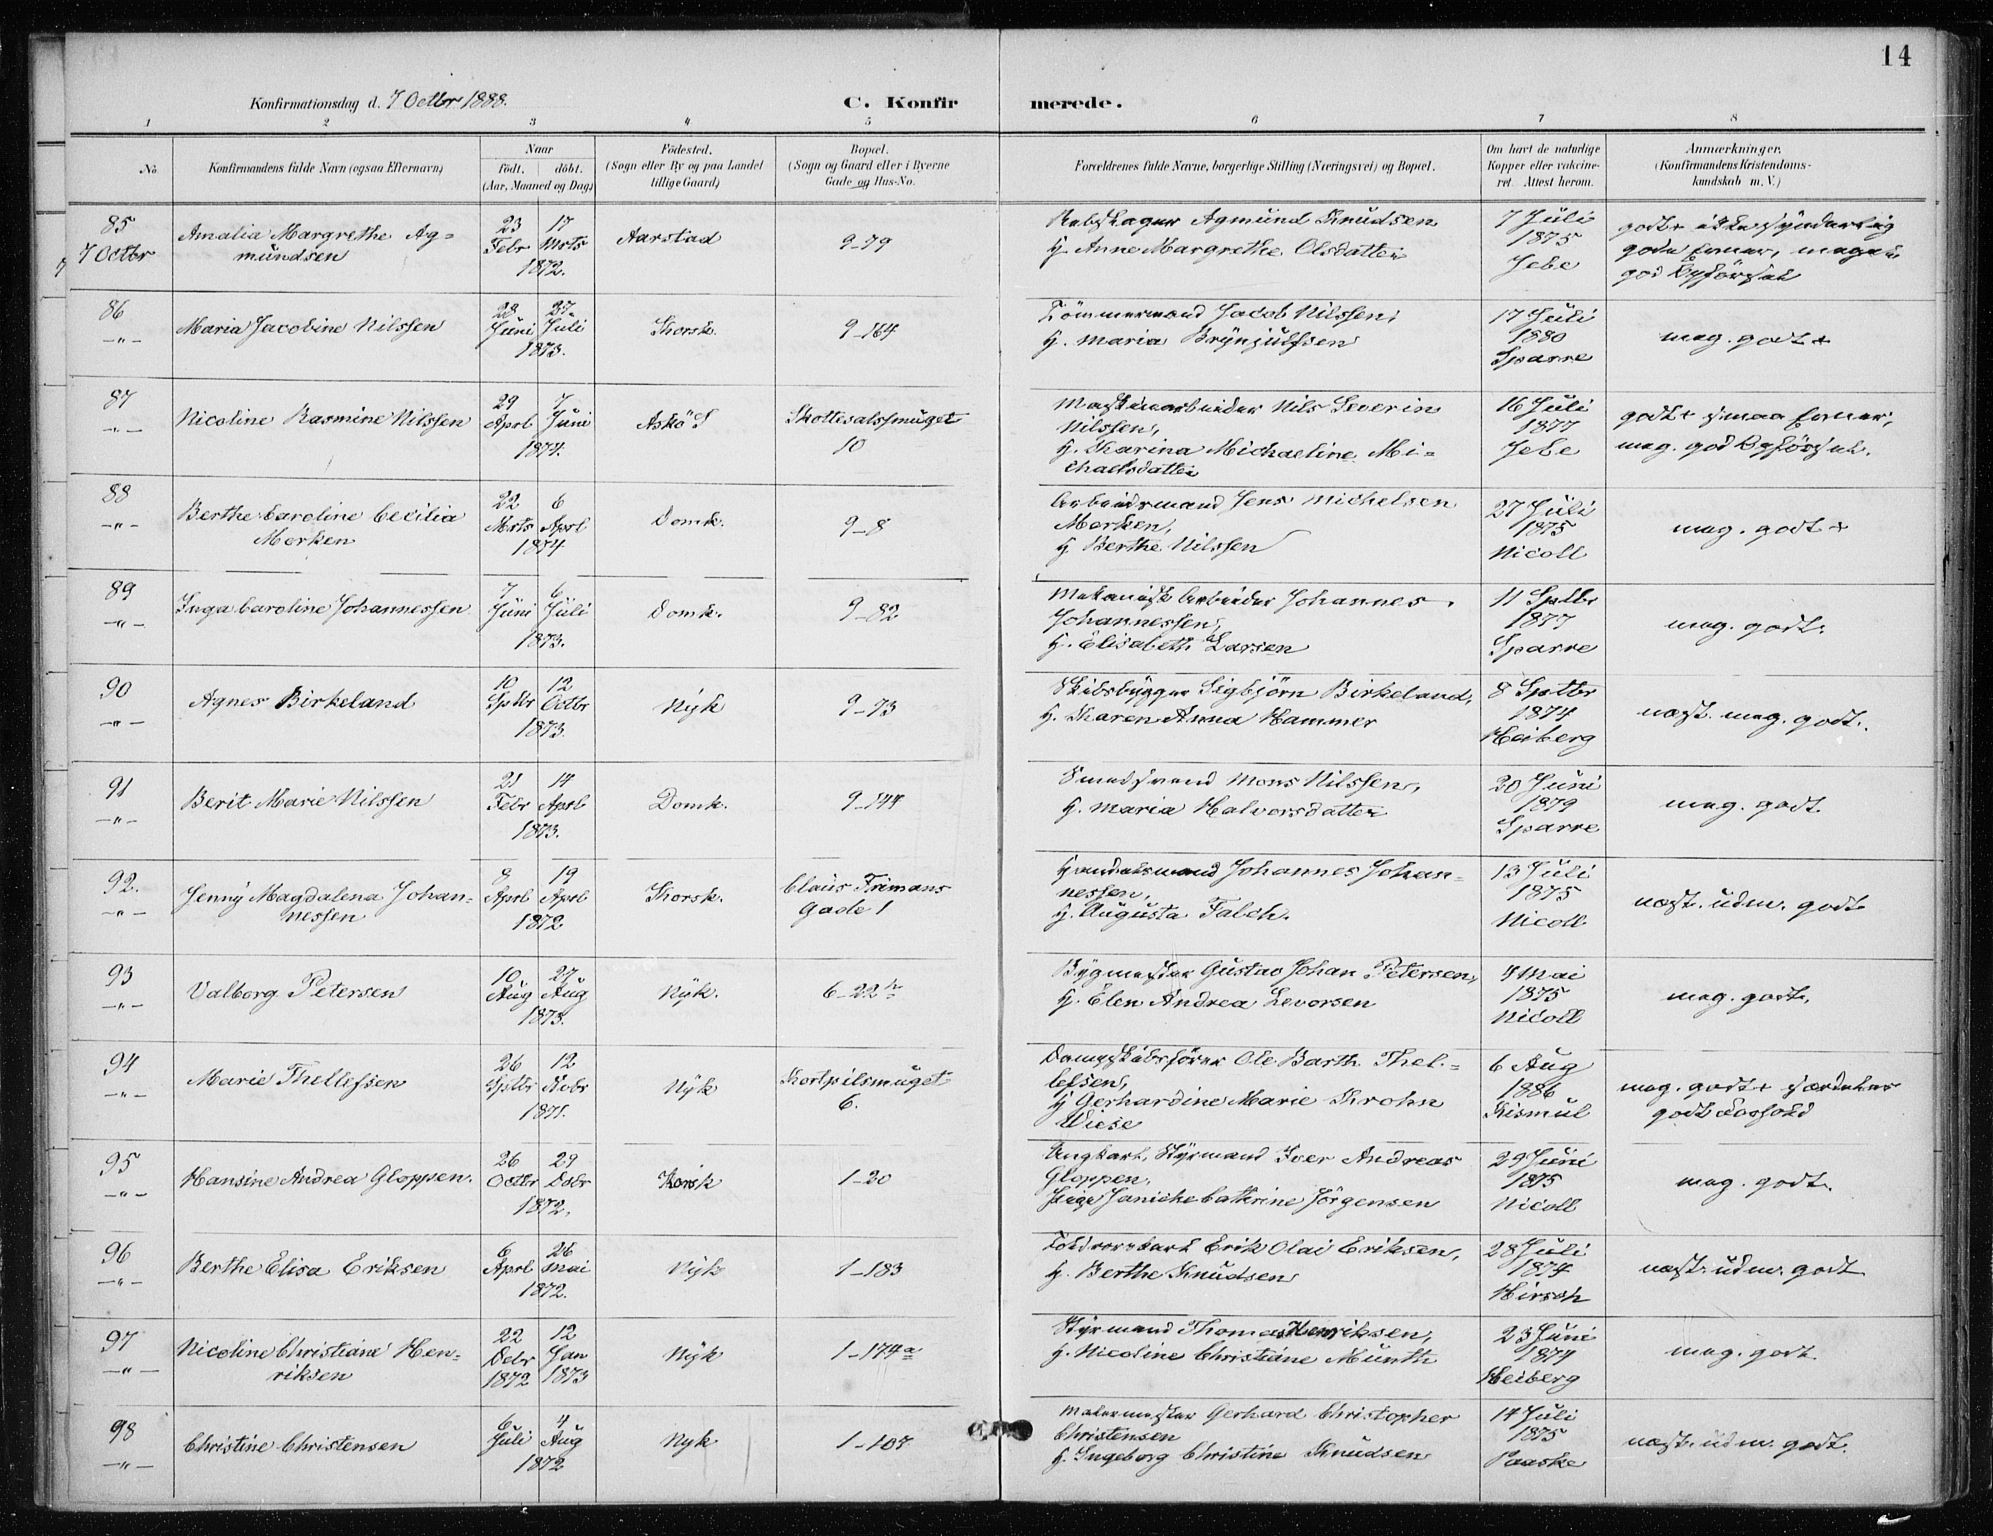 14
Konfirmationsdag d. 7 Octbr 1888.
C. Konfirmerede.
1 2 3 4 5 6 7 8
No
Konfirmandens fulde Navn (ogsaa Efternavn)
Naar
födt. döbt.
(Aar, Maaned og Dag)
Födested.
(Sogn eller By og paa Landet
tillige Gaard)
Bopæl.
(Sogn og Gaard eller i Byerne
Gade og Hus-No.
Forældrenes fulde Navne, borgerlige Stilling (Næringsvei) og Bopæl.
Om havt de naturlige
Kopper eller vakcine-
ret. Attest herom.
Anmærkninger.
(Konfirmandens Kristendoms-
kundskab m. V.)
85
7 Octbr
Amalia Margrethe Ag=
mundsen
23 Febr 17 Mrts
1872.
Aarstad
9-79
Agmund Knudsen
H. Anne Margrethe Olsdatter
7 Juli
1875
Jebe
godt
god Opförsel
86
-"-
Maria Jacobine Nilssen
28 Juni 27 Juli
1873.
Korsk.
9-164
Tömmermand Jacob Nilssen,
H. Maria Brynjulfsen
17 Juli
1880
Sparre
meg. godt +
87
-"-
Nicoline Rasmine Nilssen
29 Aprl 7 Juni
1874.
Askö S
Skottesalssmuget
10
Maskinarbeider Nils Severin
Nilssen,
H. Karina Michaeline Mi=
chaelsdatter
16 Juli
1877
Jebe
godt + smaa Evner,
meg. god Opförsel.
88
-"-
Berthe Caroline Cecilia
Morken
22 Mrts 6 Aprl
1874
Domk.
9-8
Arbeidsmand Jens Michelsen
Morken,
H. Berthe Nilssen
27 Juli
1875
Nicoll
meg. godt +
89
-"-
Inga Caroline Johannessen
7 Juni 6 Juli
1873.
Domk.
9-82
Mekanisk Arbeider Johannes
Johannessen,
H. Elisabeth Larsen
11 Sptbr
1877
Sparre
meg. godt.
90
-"-
Agnes Birkeland
10 Sptbr 12 Octbr
1873.
Nyk
9-73
Skibsbygger Sigbjörn Birkeland,
H. Karen Anna Hammer
8 Sptbr
1874
Heiberg
næst. meg. godt.
91
-"-
Berit Marie Nilssen
21 Febr 14 Aprl
1873.
Domk.
9-144
Smedsvend Mons Nilssen,
H. Maria Halvorsdatter
20 Juni
1879
Sparre
meg. godt.
92.
-"-
Jenny Magdalena Johan=
nessen
9 Aprl 19 Aprl
1872
Korsk.
Claus Frimans
gade 1
Handelsmand Johannes Johan=
nessen,
H. Augusta Falch.
13 Juli
1875
Nicoll
næst. udm. godt
93
-"-
Valborg Petersen
10 Aug 27 Aug
1873.
Nyk.
6-22
Bygmester Gustav Johan Petersen,
H. Elen Andrea Levorsen
4 Mai
1875
Nicoll
meg. godt,
94
-"-
Marie Thellefsen
26 Sptbr 12 Nobr
1871.
Nyk
Kortpilsmuget
6.
Dampskibsförer Ole Barth Thel=
lefsen,
H Gerhardine Marie Krohn
Wiese
6 Aug
1886
Kismul
meg. godt + særdeles
godt Forhold
95
-"-
Hansine Andrea Gloppen.
26 Octbr 29 Dcbr
1872.
Korsk
1-20
Ungkarl, Styrmand Iver Andreas
Gloppen,
Pige Janicke Cathrine Jörgensen
29 Juni
1875
Nicoll
meg. godt.
96
-"-
Berthe Elisa Eriksen
6 Aprl 26 Mai
1872.
Nyk
1-183
Toldroerskarl Erik Olai Eriksen,
H. Berthe Knudsen
28 Juli
1874
Hirsch
næst. udm. godt
97
-"-
Nicoline Christiane Hen=
riksen
22 Dcbr 1872 12 Jan 1873
Nyk
1-174a
Styrmand Thomas Henriksen,
H. Nicoline Christiane Munth
23 Juni
1874
Heiberg
meg. godt.
98
-"-
Christine Christensen
6 Juli 4 Aug
1872
Nyk
1-107
Malermester Gerhard Christopher
Christensen
H. Ingeborg Christine Knudsen
14 Juli
1875
Paaske
næst. udm. godt.